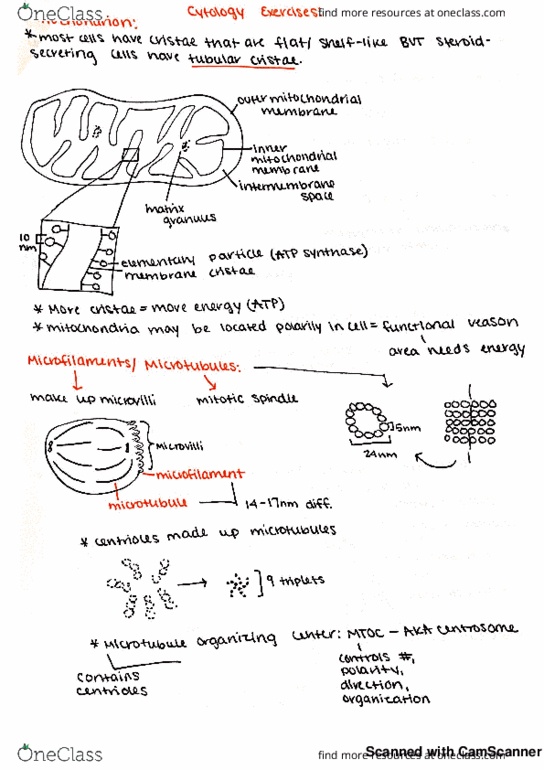 OneClass
Cytology Exercises:
find more resources at oneclass.com
*most cells have cristae that are flat/shelf-like BUT steroid-
secreting cells have tubular cristae.
outer mitochondrial
membrane
inner
mitochondrial
membrane
intermembrane
space
matrix
granules
10
nm
elementary particle (ATP synthase)
membrane cristae
* More cristae = more energy (ATP)
* mitochondria may be located polarily in cell = functional reason
area needs energy
Microfilaments/Microtubules:
make up microvilli
mitotic spindle
5nm
24nm
Microvilli
microfilament
microtubule
14-17nm diff.
* centrioles made up microtubules
9 triplets
* Microtubule organizing center: MTOC - AKA centrosome
contains
centrioles
controls #,
polarity,
direction,
organization
OneClass
find more resources at oneclass.com
Scanned with CamScanner